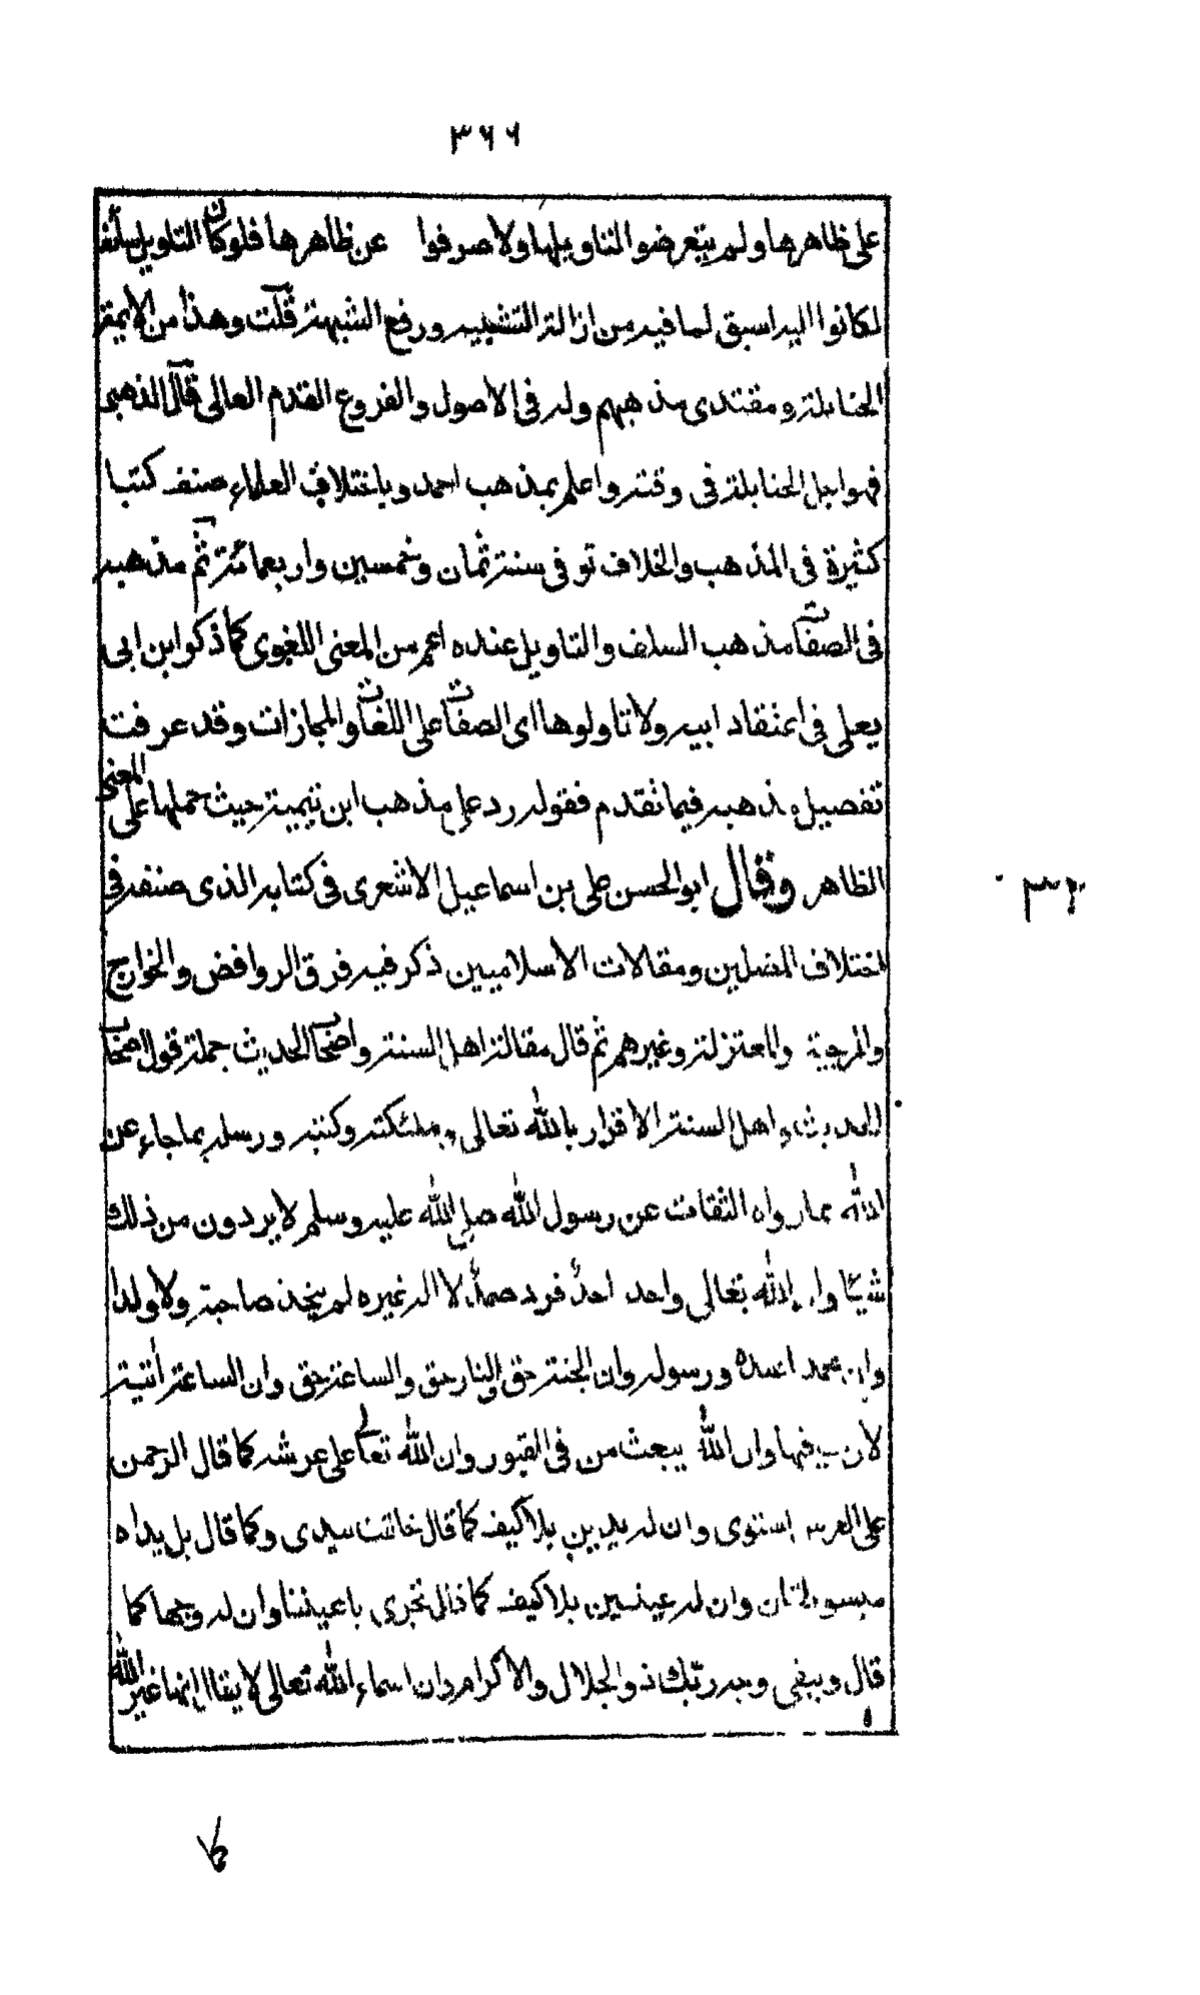 ٣٦٦
على ظاهرها ولم يتعرضوا لتاويلها ولا صرفوا عن ظاهرها فلو كان التاويل سائغا
لكانوا اليه اسبق لما فيه من ازالة التشبيه ورفع الشبهة قلت وهذا من الايمة
الحنابلة ومقتدى مذهبهم وله في الاصول والفروع القدم العالى قال الذهبى
فهو اجل الحنابلة في وقته واعلم بمذهب احمد وباختلاف العلماء صنف كتبا
كثيرة في المذهب والخلاف تو في سنة ثمان وخمسين واربعمائة ثم مذهبه
في الصفات مذهب السلف والتاويل عنده اعم من المعنى اللغوى كما ذكر ابن ابى
يعلى في اعتقاد ابيه ولا تاولوها اى الصفات على اللغات والمجازات وقد عرفت
تفصيل مذهبه فيما تقدم فقوله رد على مذهب ابن تيمية حيث حملها على المعنى
الظاهر وقال ابو الحسن على بن اسماعيل الاشعرى في كتابه الذى صنفه في
اختلاف المضلين ومقالات الاسلاميين ذكر فيه فرق الروافض والخوارج
والمرجية والمعتزلة وغيرهم ثم قال مقالة اهل السنة واصحاب الحديث جملة قول اصحاب
الحديث واهل السنة الاقرار بالله تعالى وبملئكته وكتبه ورسله بما جاء عن
الله مما رواه الثقات عن رسول الله صلى الله عليه وسلم لا يردون من ذلك
شيئا وان الله تعالى واحد احد فرد صمد لا اله غيره لم يتخذ صاحبة ولا ولدا
وان محمد اعبده ورسوله وان الجنة حق والنار حق والساعة حق وان الساعة اتية
لا ريب فيها وان الله يبعث من في القبور وان الله تعالى على عرشه كما قال الرحمن
على العرش استوى وان له يدين بلا كيف كما قال خلقت بيدى وكما قال بل يداه
مبسوطتان وان له عينين بلا كيف كما قال تجرى باعيننا وان له وجها كما
قال ويبقى وجه ربك ذو الجلال والاكرام وان اسماء الله تعالى لا يقال انها غير الله